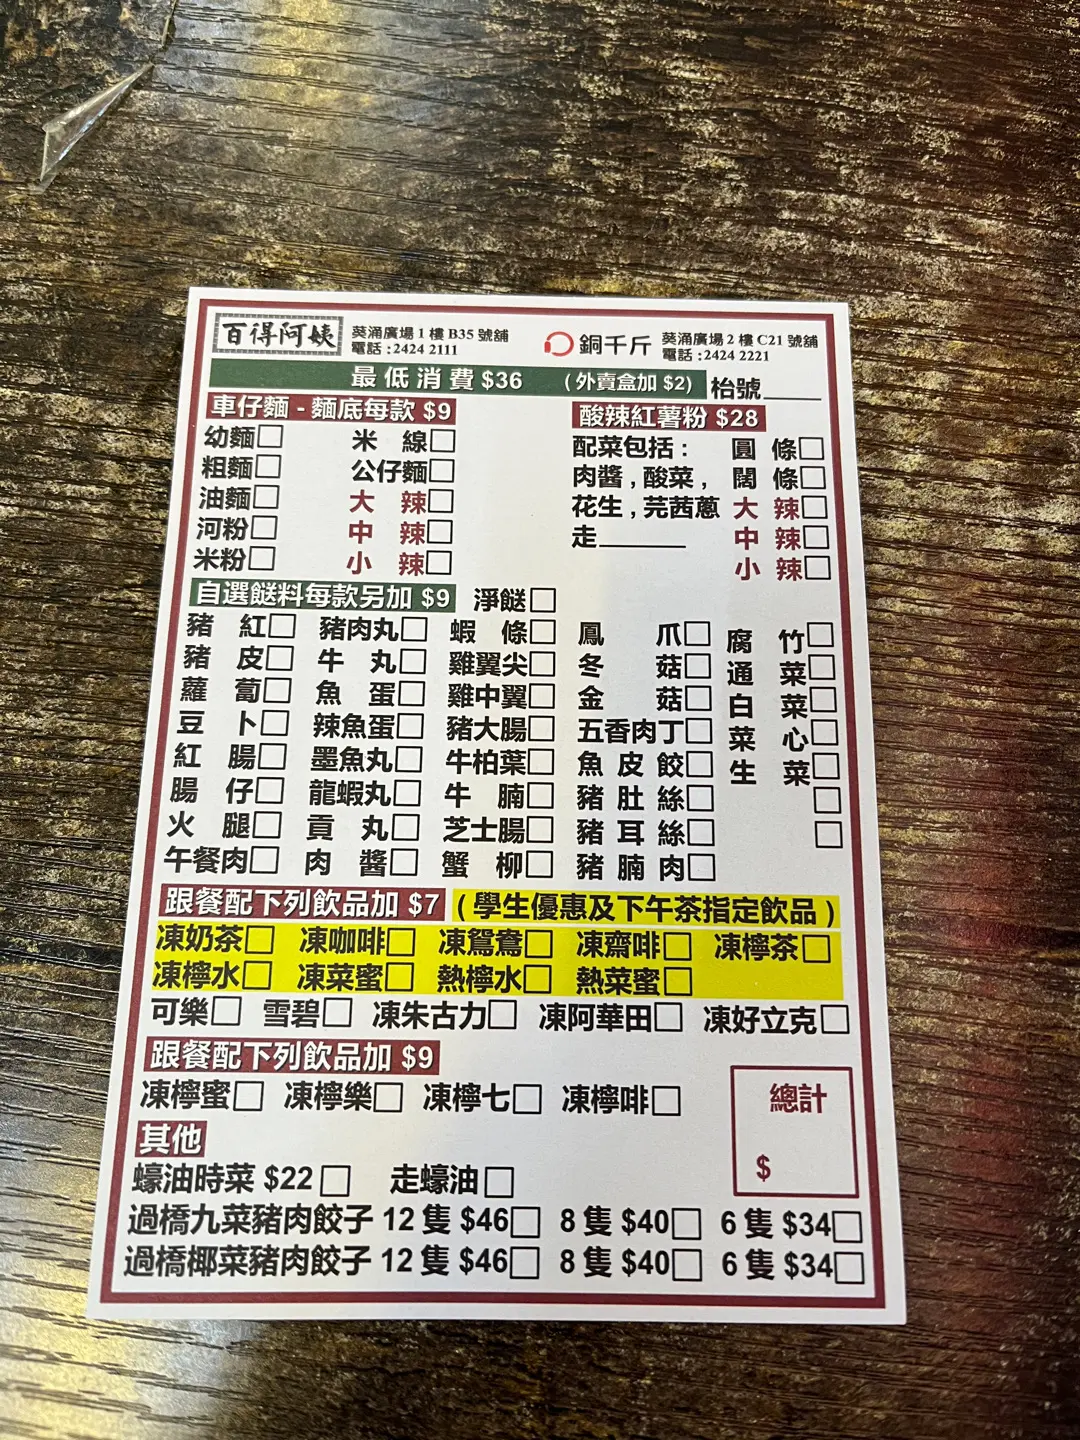 百得阿姨 葵涌廣場 1 樓 B35 號舖 電話 : 2424 2111
銅千斤 葵涌廣場 2 樓 C21 號舖 電話 : 2424 2221
最低消費 $36 ( 外賣盒加 $2) 枱號
車仔麵 - 麵底每款 $9 酸辣紅薯粉 $28
幼麵 米線 配菜包括 : 圓條
粗麵 公仔麵 肉醬 , 酸菜 , 闊條
油麵 大辣 花生 , 芫茜蔥 大辣
河粉 中辣 走 中辣
米粉 小辣 小辣
自選餸料每款另加 $9 淨餸
豬紅 豬肉丸 蝦條 鳳爪 腐竹
豬皮 牛丸 雞翼尖 冬菇 通菜
蘿蔔 魚蛋 雞中翼 金菇 白菜
豆卜 辣魚蛋 豬大腸 五香肉丁 菜心
紅腸 墨魚丸 牛柏葉 魚皮餃 生菜
腸仔 龍蝦丸 牛腩 豬肚絲
火腿 貢丸 芝士腸 豬耳絲
午餐肉 肉醬 蟹柳 豬腩肉
跟餐配下列飲品加 $7 ( 學生優惠及下午茶指定飲品 )
凍奶茶 凍咖啡 凍鴛鴦 凍齋啡 凍檸茶
凍檸水 凍菜蜜 熱檸水 熱菜蜜
可樂 雪碧 凍朱古力 凍阿華田 凍好立克
跟餐配下列飲品加 $9
凍檸蜜 凍檸樂 凍檸七 凍檸啡
總計
$
其他
蠔油時菜 $22 走蠔油
過橋九菜豬肉餃子 12 隻 $46 8 隻 $40 6 隻 $34
過橋椰菜豬肉餃子 12 隻 $46 8 隻 $40 6 隻 $34